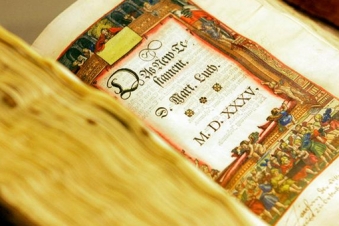 Das New Te-
stament.
D. Mart. Luth.
M. D. XXXV.